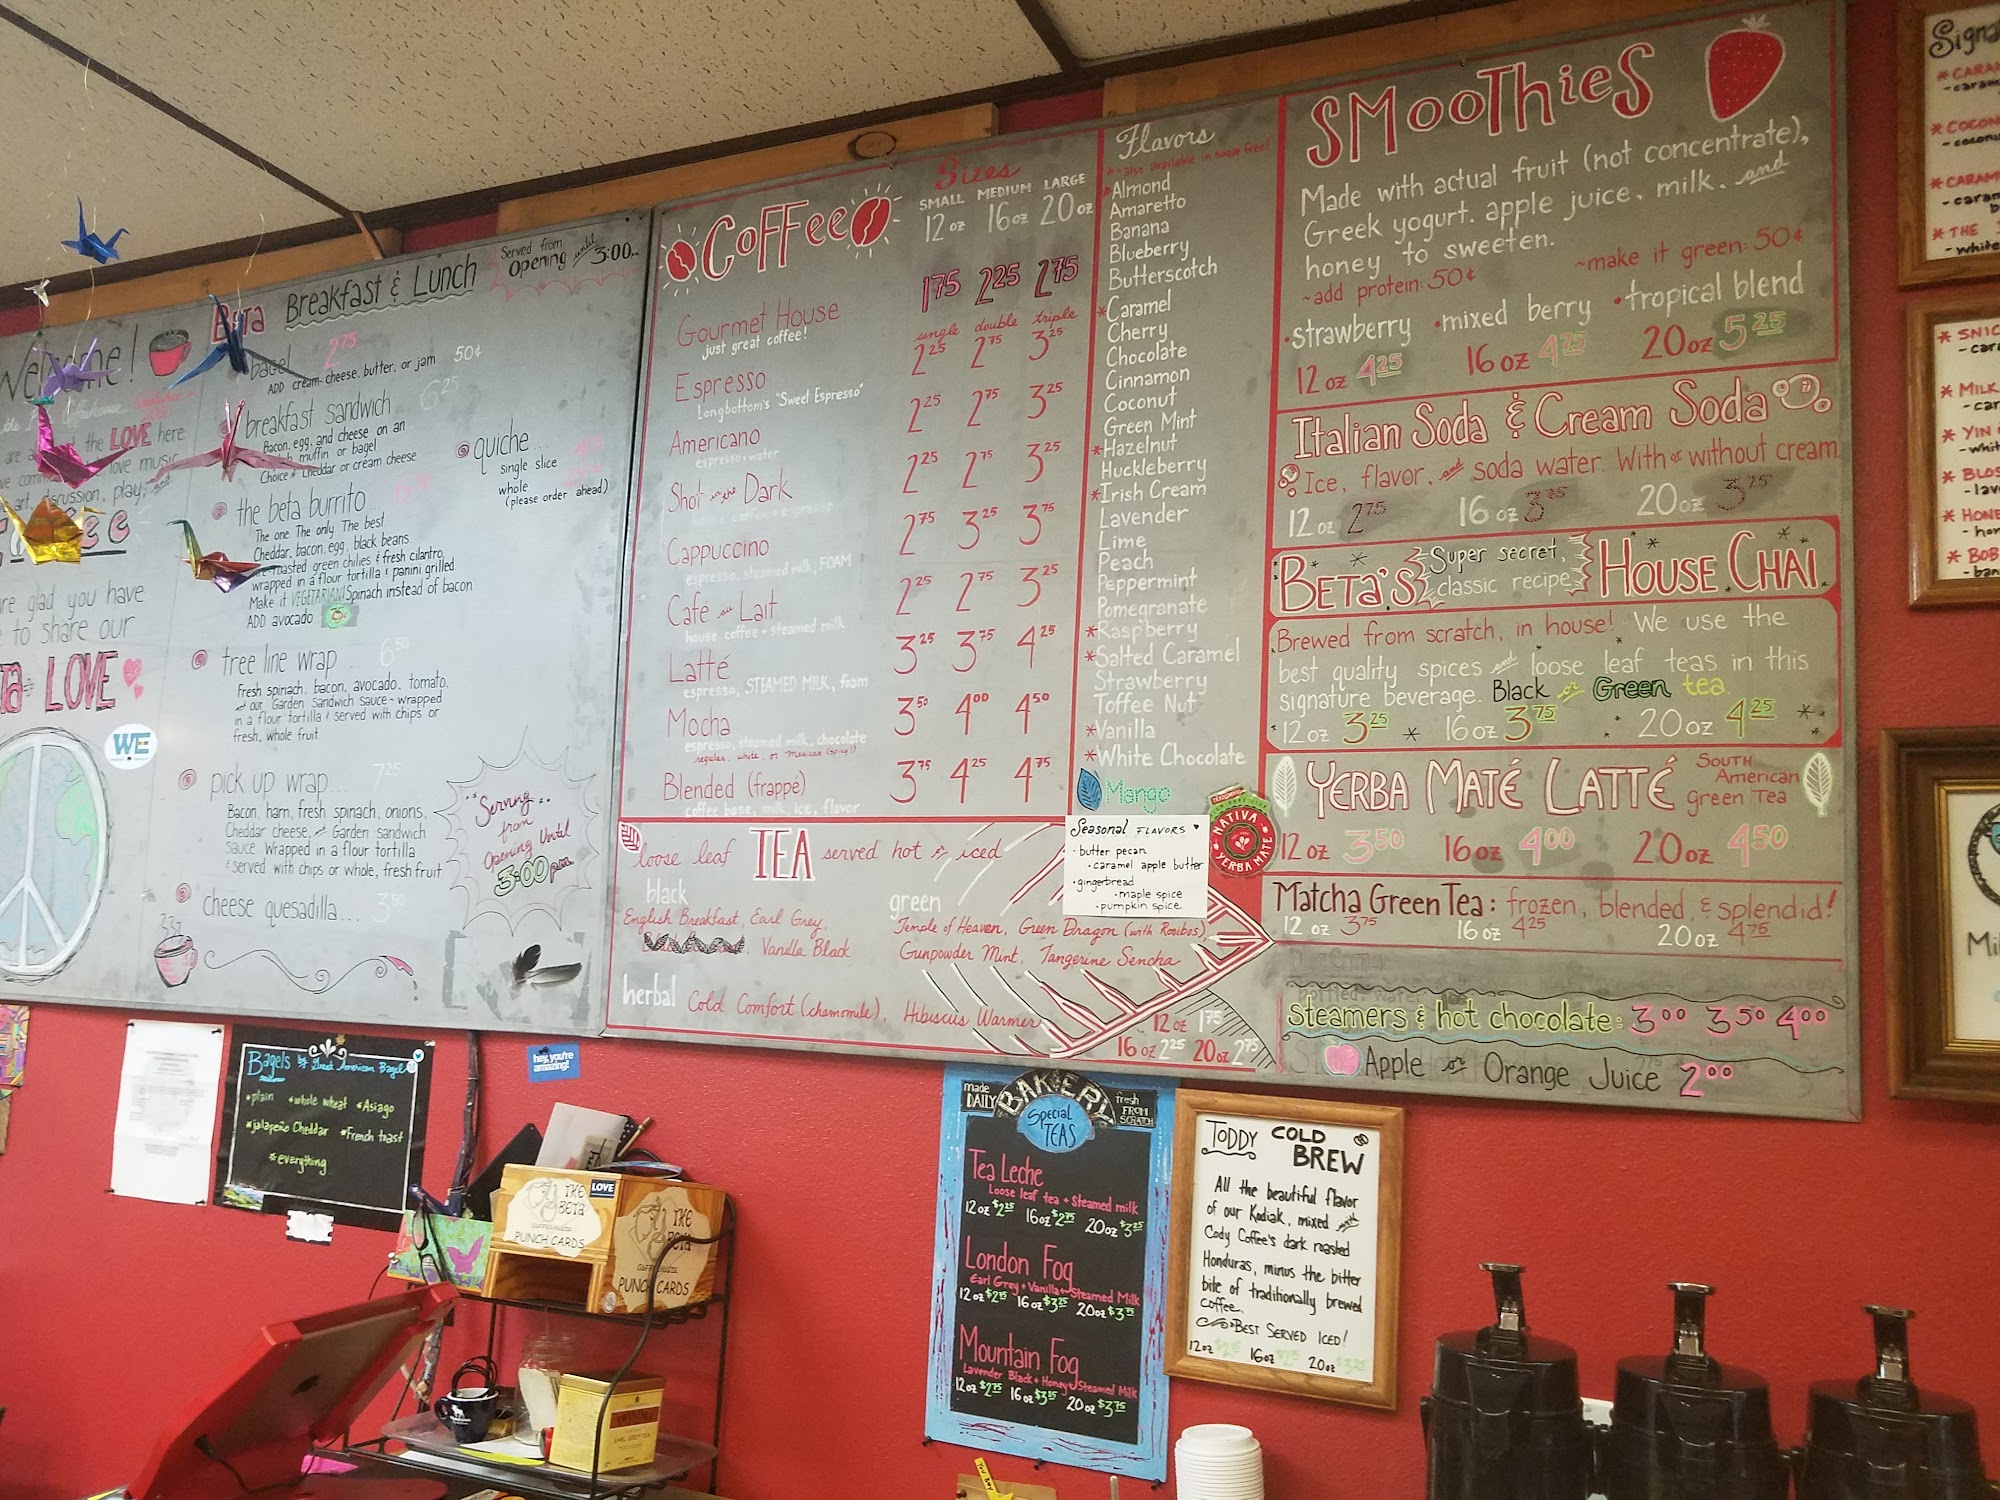 Welcome!
the LOVE here
love music,
art, discussion, play,
glad you have
to share our
LOVE
WE
Beta Breakfast & Lunch
Served from
Opening until 3:00
bagel 2.75
ADD cream cheese, butter, or jam 50¢
breakfast sandwich 6.25
Bacon, egg, and cheese on an
muffin or bagel
Choice of Cheddar or cream cheese
quiche...
single slice
whole
(please order ahead)
the beta burrito
The one. The only. The best.
Cheddar, bacon, egg, black beans,
fire-roasted green chilies & fresh cilantro,
wrapped in a flour tortilla & panini grilled.
Make it VEGETARIAN! Spinach instead of bacon
ADD avocado
tree line wrap... 6.50
Fresh spinach, bacon, avocado, tomato,
and our Garden Sandwich sauce - wrapped
in a flour tortilla & served with chips or
fresh, whole fruit
pick up wrap... 7.25
Bacon, ham, fresh spinach, onions,
Cheddar cheese, and Garden sandwich
sauce. Wrapped in a flour tortilla
& served with chips or whole, fresh fruit
cheese quesadilla... 3.50
Serving
from
Opening Until
3:00 pm
COFFee
Sizes
SMALL MEDIUM LARGE
12oz 16oz 20oz
Gourmet House 1.75 2.25 2.75
just great coffee!
single double triple
Espresso 2.25 2.75 3.25
Longbottom's "Sweet Espresso"
Americano 2.25 2.75 3.25
espresso + water
Shot in the Dark 2.25 2.75 3.25
house coffee + espresso
Cappuccino 2.75 3.25 3.75
espresso, steamed milk, FOAM
Café au Lait 2.25 2.75 3.25
house coffee + steamed milk
Latté 3.25 3.75 4.25
espresso, STEAMED MILK, foam
Mocha 3.50 4.00 4.50
espresso, steamed milk, chocolate
regular, white, or mexican (spicy!)
Blended (frappé) 3.75 4.25 4.75
coffee base, milk, ice, flavor
Flavors
* - also available in sugar free!
*Almond
Amaretto
Banana
Blueberry
Butterscotch
*Caramel
Cherry
Chocolate
Cinnamon
Coconut
Green Mint
*Hazelnut
Huckleberry
*Irish Cream
Lavender
Lime
Peach
Peppermint
Pomegranate
*Raspberry
*Salted Caramel
Strawberry
Toffee Nut
*Vanilla
*White Chocolate
Mango
Seasonal FLAVORS ♥
· butter pecan
· caramel apple butter
· gingerbread
· maple spice
· pumpkin spice
NATIVA
YERBA MATE
loose leaf TEA served hot or iced
black
English Breakfast, Earl Grey,
Vanilla Black
green
Temple of Heaven, Green Dragon (with Rooibos)
Gunpowder Mint, Tangerine Sencha
herbal Cold Comfort (chamomile), Hibiscus Warmer
12 oz 1.75
16 oz 2.25 20oz 2.75
SMooThieS
Made with actual fruit (not concentrate),
Greek yogurt, apple juice, milk, and
honey to sweeten.
~add protein: 50¢ ~make it green: 50¢
·strawberry ·mixed berry ·tropical blend
12 oz 4.25 16 oz 4.75 20oz 5.25
Italian Soda & Cream Soda
Ice, flavor, and soda water. With or without cream
12 oz 2.75 16 oz 3.25 20oz 3.75
BETA'S Super secret, classic recipe HOUSE CHAI
Brewed from scratch, in house! We use the
best quality spices and loose leaf teas in this
signature beverage. Black or Green tea.
12 oz 3.25 16 oz 3.75 20oz 4.25
YERBA MATÉ LATTÉ SOUTH American green Tea
12 oz 3.50 16oz 4.00 20 oz 4.50
Matcha Green Tea: frozen, blended, & splendid!
12 oz 3.75 16 oz 4.25 20oz 4.75
steamers & hot chocolate: 3.00 3.50 4.00
Apple or Orange Juice 2.00
Bagels by Great American Bagel
*plain *whole wheat *Asiago
*jalapeño Cheddar *French toast
*everything
hey, you're
amazing!
THE BETA
COFFEEHOUSE
PUNCH CARDS
LOVE
THE BETA
COFFEEHOUSE
PUNCH CARDS
TWININGS
EARL GREY TEA
made DAILY
BAKERY
fresh FROM SCRATCH
Special TEAS
Tea Leche
Loose leaf tea + Steamed milk
12oz $2.25 16oz $2.75 20oz $3.25
London Fog
Earl Grey + Vanilla + Steamed Milk
12oz $2.75 16oz $3.25 20oz $3.75
Mountain Fog
Lavender Black + Honey + Steamed Milk
12oz $2.75 16oz $3.25 20oz $3.75
TODDY COLD
BREW
All the beautiful flavor
of our Kodiak, mixed with
Cody Coffee's dark roasted
Honduras, minus the bitter
bite of traditionally brewed
coffee.
BEST SERVED ICED!
12oz 16oz 20oz
* THE
* MILK
* YIN